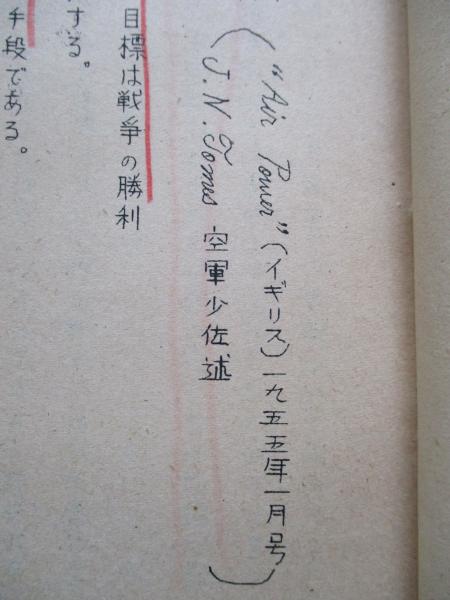 （“Air Power”（イギリス）一九五五年一月号
J. N. Tomes 空軍少佐述）
目標は戦争の勝利
する。
手段である。